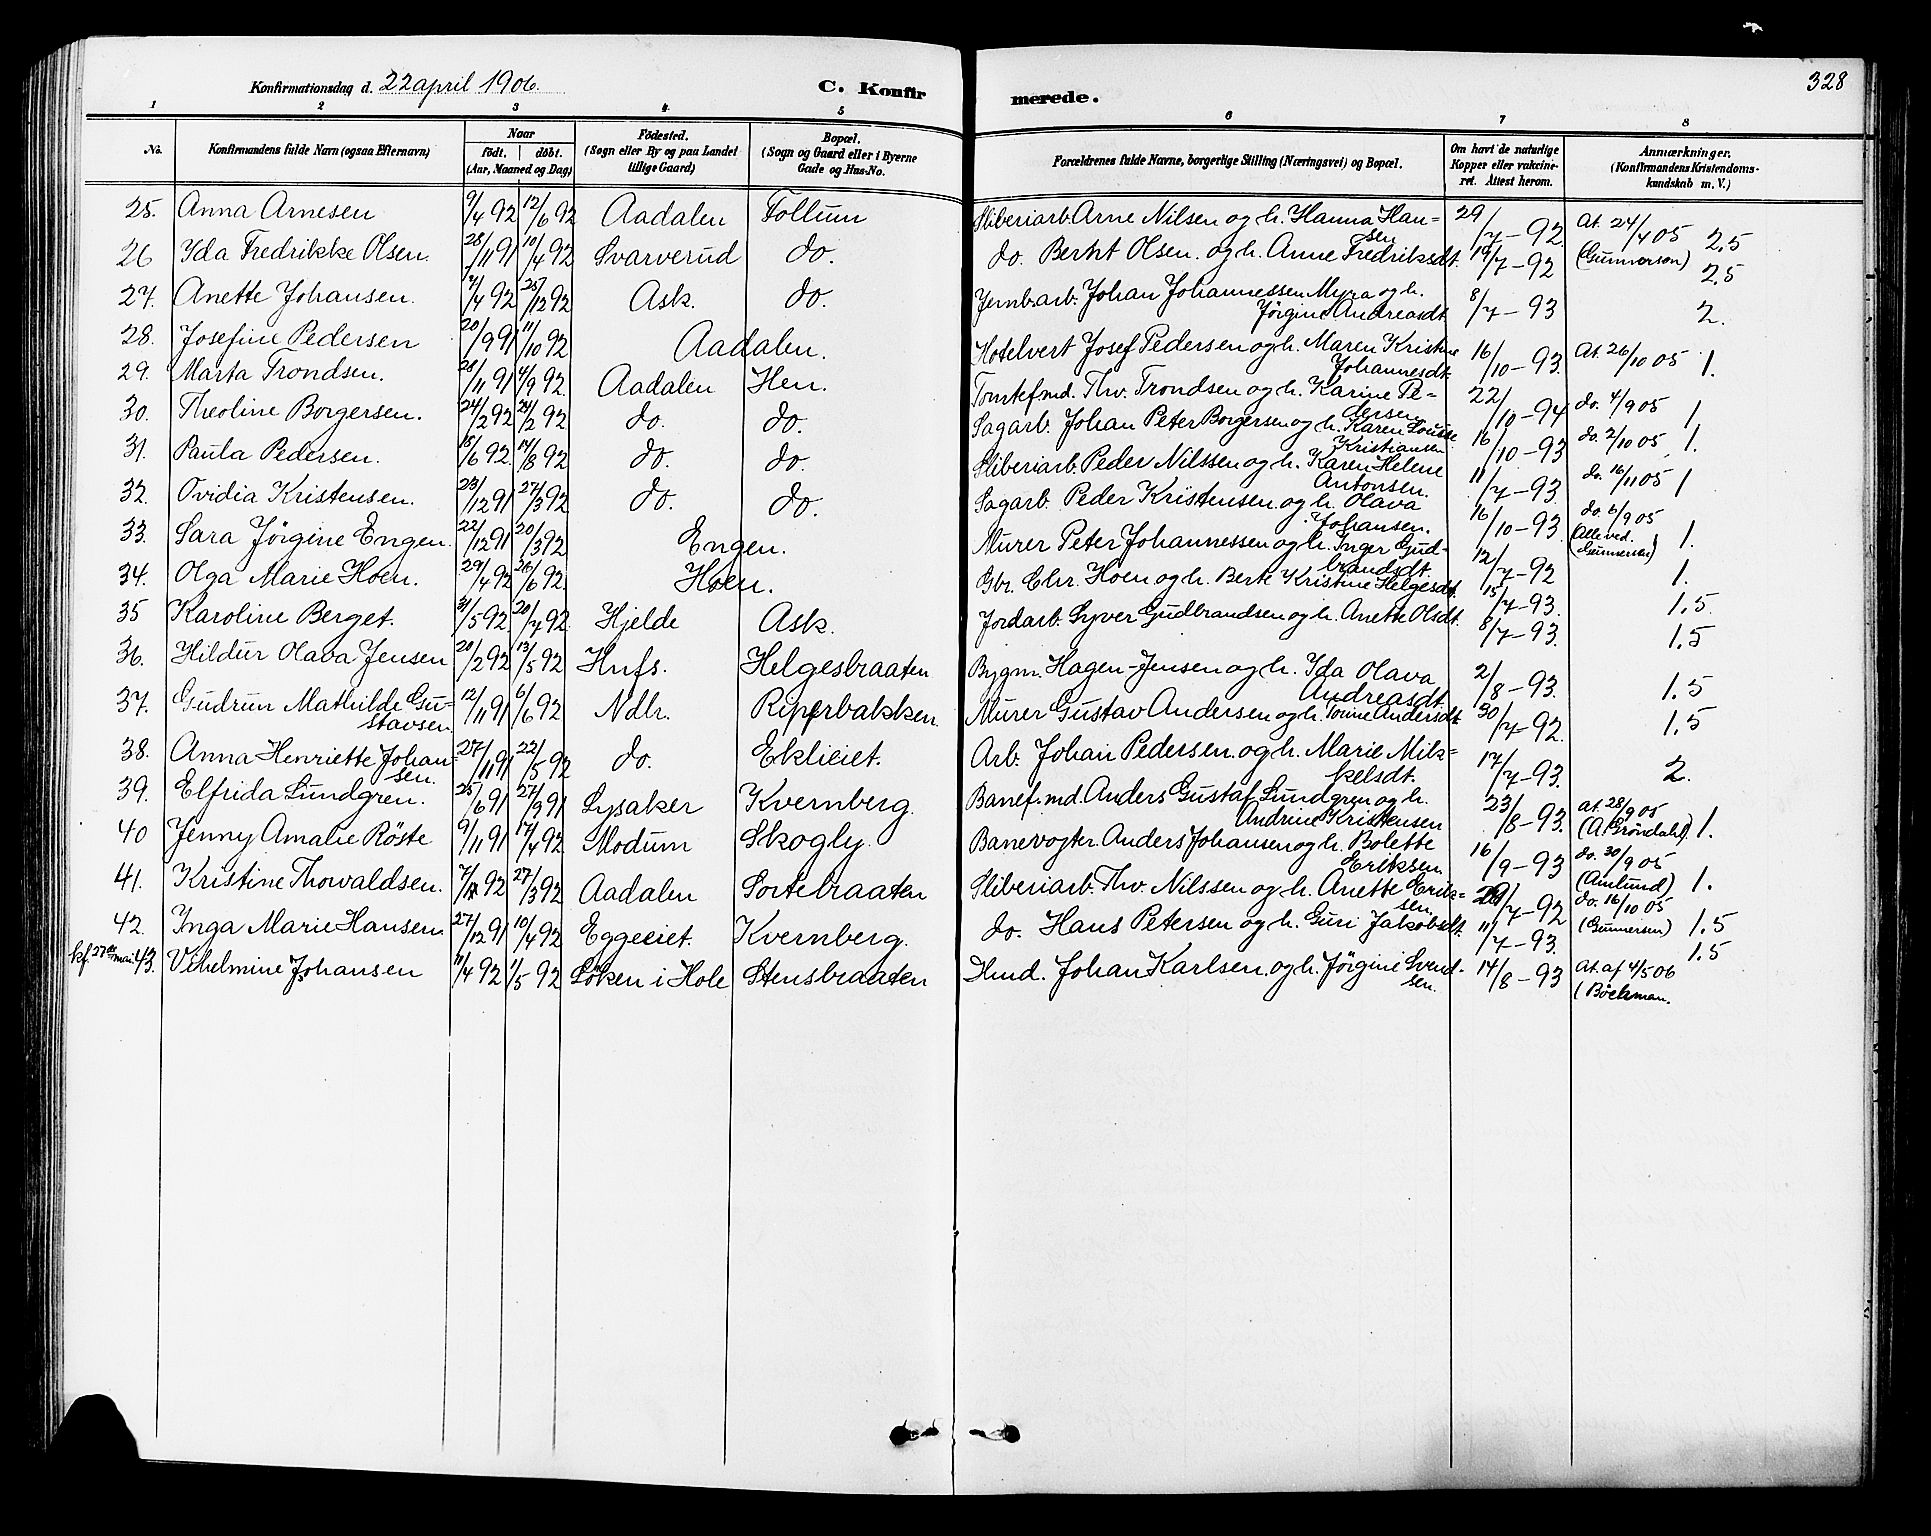 328
Konfirmationsdag d. 22 april 1906.
C. Konfirmerede.
1 2 3 4 5 6 7 8
No.
Konfirmandens fulde Navn (ogsaa Efternavn)
Naar
födt. döbt.
(Aar, Maaned og Dag)
Födested.
(Sogn eller By og paa Landet
tillige Gaard)
Bopæl.
(Sogn og Gaard eller i Byerne
Gade og Hus-No.
Forældrenes fulde Navne, borgerlige Stilling (Næringsvei) og Bopæl.
Om havt de naturlige
Kopper eller vakcine-
ret. Attest herom.
Anmærkninger.
(Konfirmandens Kristendoms-
kundskab m. V.)
25. Anna Arnesen 9/4 92 12/6 92 Aadalen Follum Sliberiarb. Arne Nilsen og h. Hanna Hansen 29/7-92 At. 24/4 05 (Gunnersen) 2.5
26 Ida Fredrikke Olsen. 28/11 91 10/4 92 Svarverud do. do. Berht Olsen. og h. Anne Fredriksdt. 19/7-92 2.5
27. Anette Johansen. 7/4 92 25/12 92 Ask. do. Jernb.arb. Johan Johannessen Myra og h. Jörgine Andreasdt. 8/7-93 2.
28. Josefine Pedersen 20/9 91 11/10 92 Aadalen. Hotelvert Josef Pedersen og h. Maren Kristine Johannesdt. 16/10-93. At. 26/10 05 1.
29. Marta Trondsen. 28/11 91 4/9 92. Aadalen Hen. Tomtef.md. Thv. Trondsen og h. Karine Pedersen 22/10-94 do. 4/9 05 1
30. Theoline Borgersen. 24/2 92 24/2 92 do. do. Sagarb. Johan Peter Borgersen og h. Karen Louise Kristiansen 16/10-93 do. 2/10 05 1.
31. Paula Pedersen. 18/6 92. 14/8 92 do. do. Sliberiarb. Peder Nilssen og h. Karen Helene Antonsen. 11/7-93. do. 16/11 05 1
32. Ovidia Kristensen. 23/12 91 27/3 92 do. do. Sagarb. Peder Kristensen og h. Olava Johansen. 16/10-93. do. 6/9 05 (Alle ved. Gunnersen) 1.
33. Sara Jörgine Engen. 22/12 91 20/3 92 Engen. Murer Peter Johannessen og h. Inger Gudbrandsdt. 12/7-92 1.
34. Olga Marie Hoen. 29/4 92 26/6 92. Hoen. Gbr. Chr. Hoen og h. Berte Kristine Helgesdt. 15/7-93. 1.5
35 Karoline Berget. 31/5 92. 20/7 92 Hjelde Ask. Jordarb. Syver Gudbrandsen og h. Anette Olsdt. 8/7-93. 1.5
36. Hildur Olava Jensen 20/2 92 13/5 92 Hnfs. Helgesbraaten Bygm. Hagen-Jensen og h. Ida Olava Andreasdt. 2/8-93. 1.5
37. Gudrun Mathilde Gustavsen. 12/11 91 6/6 92 Ndh. Riperbakken. Murer Gustav Andersen og h. Tonine Andersdt. 30/7-92. 1.5
38. Anna Henriette Johansen. 27/11 91 22/5 92 do. Eklieiet. Arb. Johan Pedersen. og h. Marie Mikkelsdt. 17/7-93. 2.
39. Elfrida Lundgren. 25/6 91 27/9 91 Lysaker Kvernberg. Banef.md. Anders Gustaf Lundgren og h. Andrine Kristensen 23/8-93. at. 28/9 05 (A. Gröndahl) 1.
40 Jenny Amalie Röste 9/11 91 17/4 92 Modum Skogly. Banevogter. Anders Johansen og h. Bolette Eriksen 16/9-93 do. 30/9 05 (Amlund) 1.
41. Kristine Thorvaldsen. 92 27/3 92 Aadalen Sortebraaten Sliberiarb. Thv. Nilssen og h. Anette Eriksen 7-92 do. 16/10 05 (Gunnersen) 1.5
42. Inga Marie Hansen. 27/12 91 10/4 92 Eggeeiet. Kvernberg. do. Hans Petersen og h. Guri Jakobsdt. 11/7-93. 1.5
kf. 27de mai. 43. Vilhelmine Johansen 11/4 92 1/5 92 Löken i Hole Stensbraaten Hmd. Johan Karlsen. og h. Jörgine Svendsen. 14/8-93 At. af 4/5 06 (Böckman.